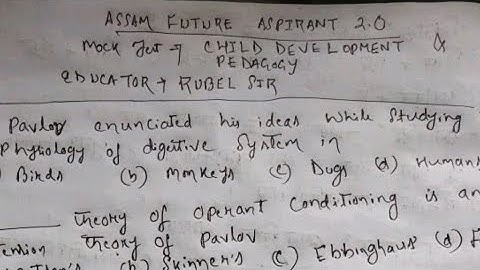 ASSAM FUTURE ASPIRANT 2.0
Mock Test → CHILD DEVELOPMENT &
PEDAGOGY
EDUCATOR → RUBEL SIR
Pavlov enunciated his ideas while studying
Physiology of digestive System in
Birds (b) Monkeys (c) Dogs (d) Humans
Theory of Operant Conditioning is an
Theory of Pavlov.
(b) Skinner's (c) Ebbinghaus (d)